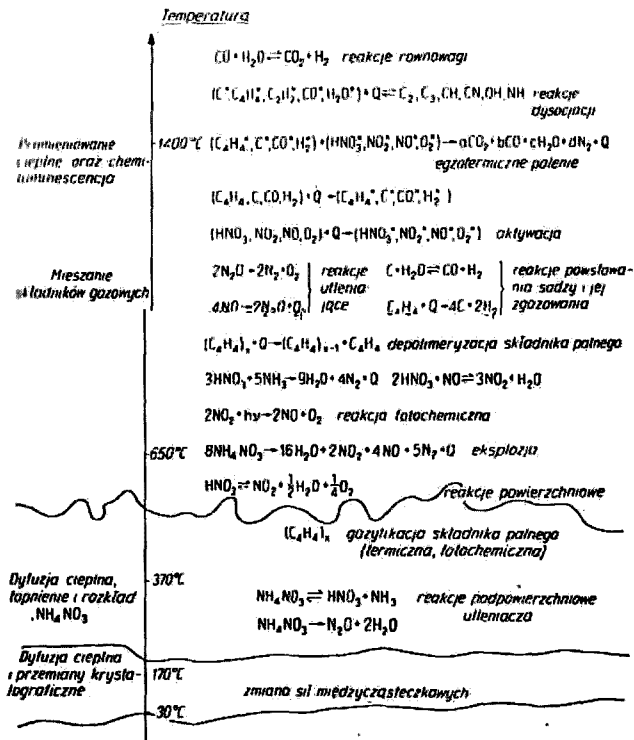 Temperatura
CO + H₂O ⇌ CO₂ + H₂ reakcje rownowagi
(C*, C₄H₄*, C₂H₂*, CO*, H₂O*) + Q ⇌ C₂, C₃, CH, CN, OH, NH reakcje
dysocjacji
Promieniowanie
cieplne oraz chemi-
luminescencja
1400°C (C₄H₄*, C*, CO*, H₂*) + (HNO₃*, NO₂*, NO*, O₂*) → aCO₂ + bCO + cH₂O + dN₂ + Q
egzotermiczne palenie
(C₄H₄, C, CO, H₂) + Q → (C₄H₄*, C*, CO*, H₂*)
(HNO₃, NO₂, NO, O₂) + Q → (HNO₃*, NO₂*, NO*, O₂*) aktywacja
Mieszanie
składników gazowych
2N₂O → 2N₂ + O₂ reakcje C + H₂O ⇌ CO + H₂ reakcje powstawa-
utlenia nia sadzy i jej
4NO → 2N₂O + O₂ jące C₄H₄ + Q → 4C + 2H₂ zgazowania
(C₄H₄)ₙ + Q → (C₄H₄)ₙ₋₁ + C₄H₄ depolimeryzacja składnika palnego
3HNO₃ + 5NH₃ → 9H₂O + 4N₂ + Q 2HNO₃ + NO ⇌ 3NO₂ + H₂O
2NO₂ + hγ → 2NO + O₂ reakcja fotochemiczna
650°C 8NH₄NO₃ → 16H₂O + 2NO₂ + 4NO + 5N₂ + Q eksplozja
HNO₃ ⇌ NO₂ + ½H₂O + ¼O₂ reakcje powierzchniowe
(C₄H₄)ₙ gazyfikacja składnika palnego
(termiczna, fotochemiczna)
Dyfuzja cieplna,
topnienie i rozkład
NH₄NO₃
370°C
NH₄NO₃ ⇌ HNO₃ + NH₃ reakcje podpowierzchniowe
utleniacza
NH₄NO₃ → N₂O + 2H₂O
Dyfuzja cieplna
i przemiany krysta-
lograficzne
170°C
zmiana sił międzycząsteczkowych
30°C